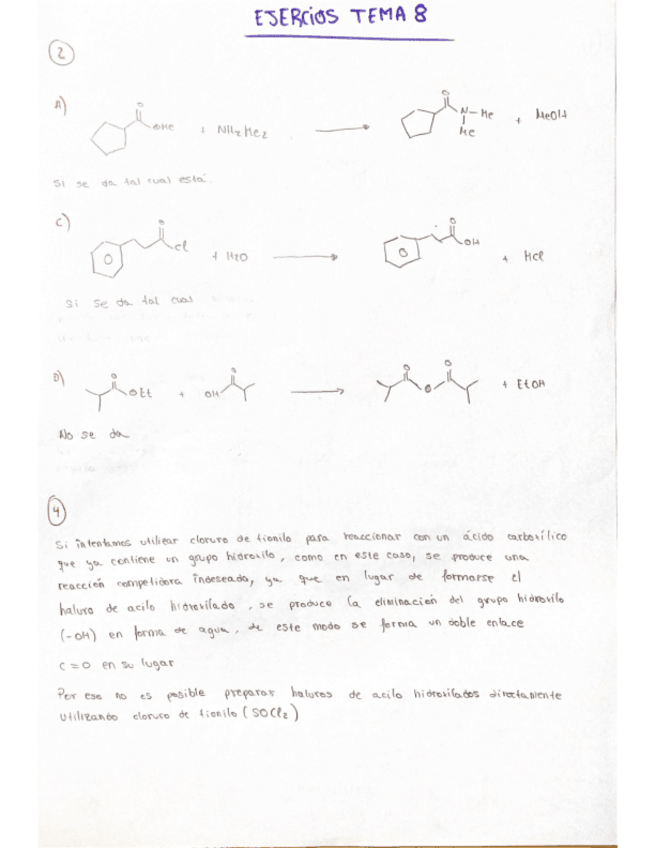 EJERCIOS TEMA 8
2
A)
O
OMe + NH2Me2
O
N-Me
Me
+ MeOH
Si se da tal cual está.
C)
O
Cl + H2O
O
OH
+ HCl
Si se da tal cual
D)
O
OEt + OH
O
O O
O
+ EtOH
No se da
4
Si intentamos utilizar cloruro de tionilo para reaccionar con un ácido carboxílico
que ya contiene un grupo hidroxilo, como en este caso, se produce una
reacción competidora indeseada, ya que en lugar de formarse el
haluro de acilo hidroxilado, se produce la eliminación del grupo hidroxilo
(-OH) en forma de agua, de este modo se forma un doble enlace
C=O en su lugar
Por eso no es posible preparar haluros de acilo hidroxilados directamente
utilizando cloruro de tionilo (SOCl2)